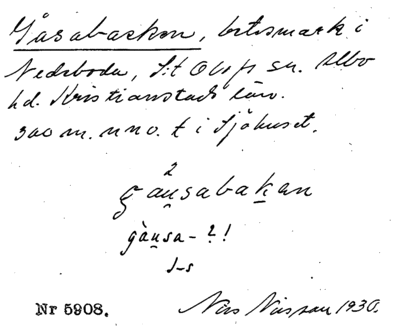 Gåsabacken, betesmark i
Nedraboda, S:t Olofs sn. Albo
hd. Kristianstads län.
300 m. nno. t i Sjöhuset.
2
gau̯sabaḵan
gàu̯sa-2!
J-s
Nr 5908. Nils Nilsson 1930.